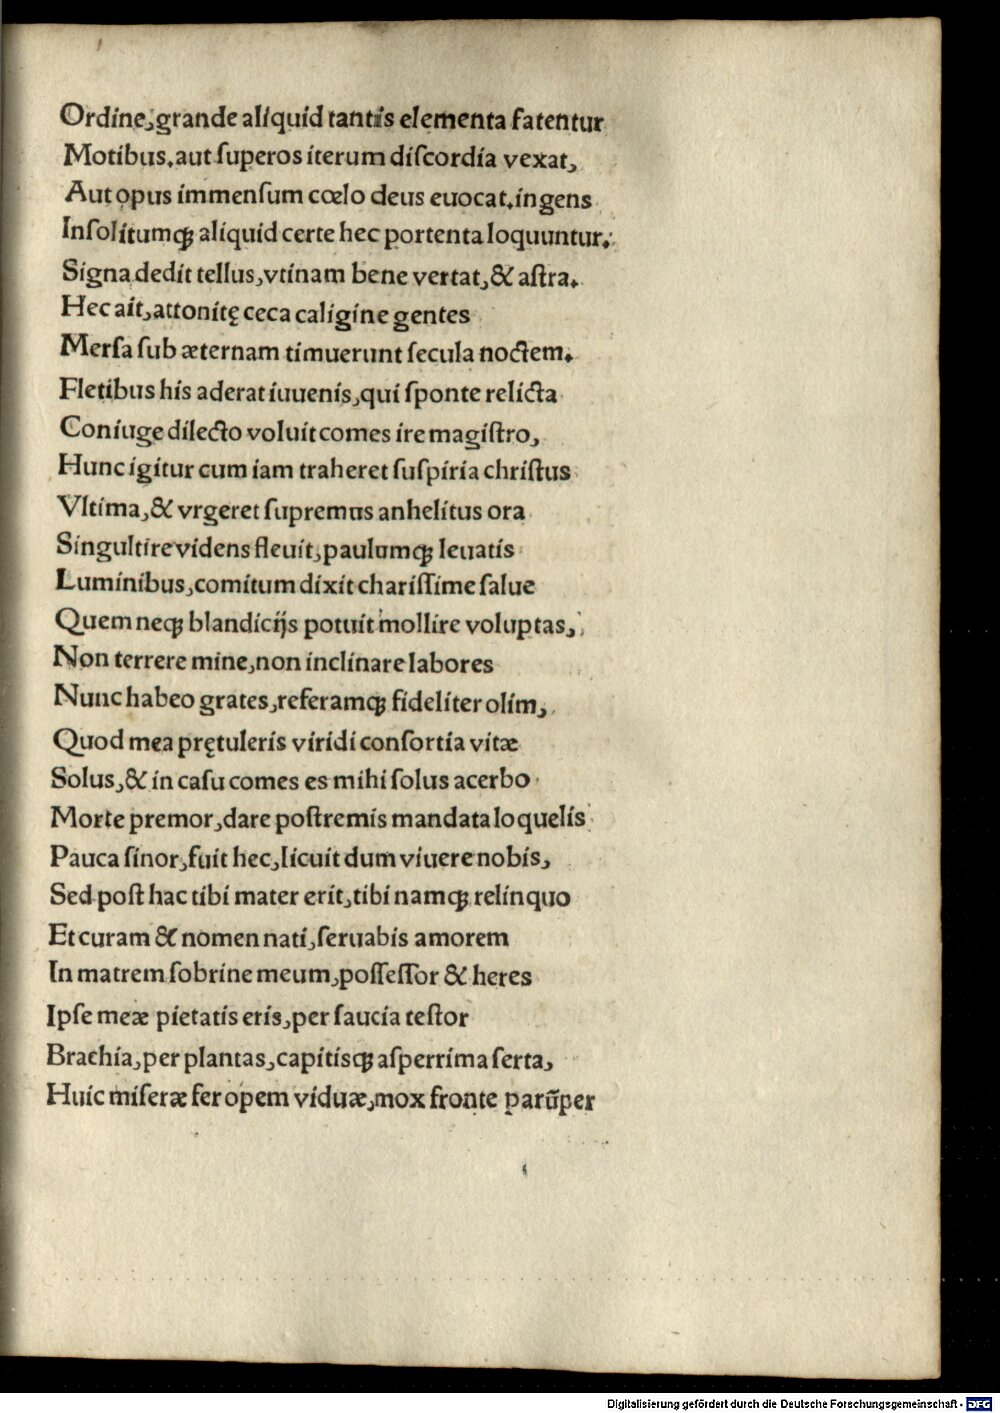 Ordine,grande aliquid tantis elementa fatentur
Motibus.aut ſuperos iterum diſcordia vexat,
Aut opus immenſum cœlo deus euocat.ingens
Inſolitumq; aliquid certe hec portenta loquuntur.
Signa dedit tellus,vtinam bene vertat,& aſtra.
Hec ait,attonitę ceca caligine gentes
Merſa ſub æternam timuerunt ſecula noctem.
Fletibus his aderat iuuenis,qui ſponte relicta
Coniuge dilecto voluit comes ire magiſtro,
Hunc igitur cum iam traheret ſuſpiria chriſtus
Vltima,& vrgeret ſupremus anhelitus ora
Singultire videns fleuit,paulumq; leuatis
Luminibus,comitum dixit chariſſime ſalue
Quem neq; blandicijs potuit mollire voluptas,
Non terrere mine,non inclinare labores
Nunc habeo grates,referamq; fideliter olim,
Quod mea prętuleris viridi conſortia vitæ
Solus,& in caſu comes es mihi ſolus acerbo
Morte premor,dare poſtremis mandata loquelis
Pauca ſinor,fuit hec,licuit dum viuere nobis,
Sed poſt hac tibi mater erit,tibi namq; relinquo
Et curam & nomen nati,ſeruabis amorem
In matrem ſobrine meum,poſſeſſor & heres
Ipſe meæ pietatis eris,per ſaucia teſtor
Brachia,per plantas,capitisq; aſperrima ſerta,
Huic miſeræ fer opem viduæ,mox fronte parūper
Digitalisierung gefördert durch die Deutsche Forschungsgemeinschaft - DFG